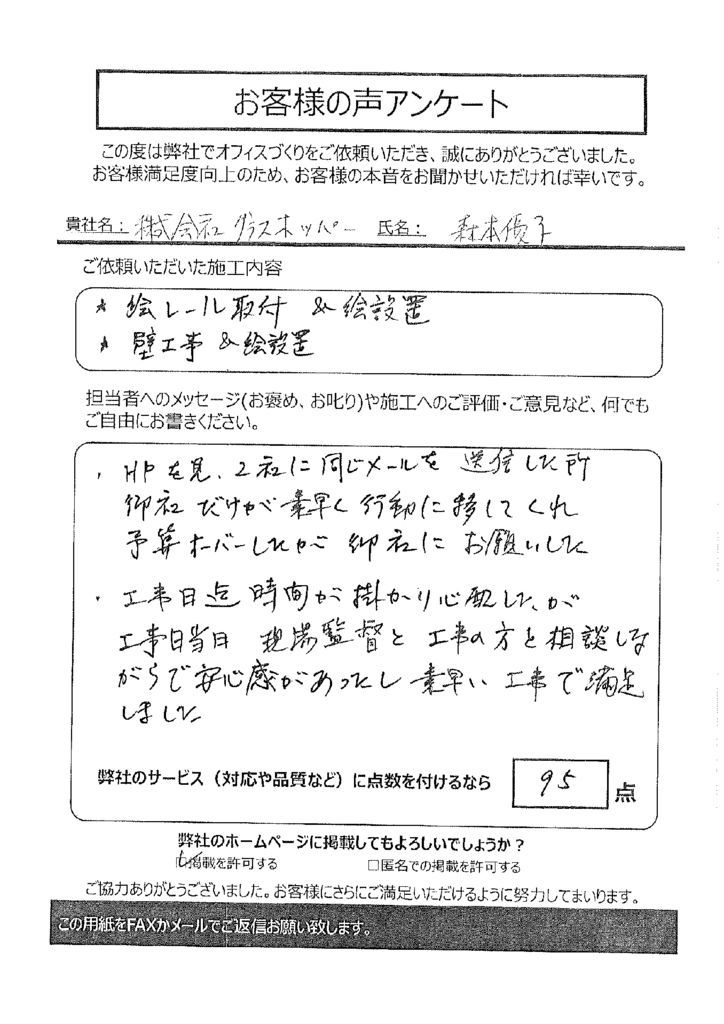 お客様の声アンケート
この度は弊社でオフィスづくりをご依頼いただき、誠にありがとうございました。
お客様満足度向上のため、お客様の本音をお聞かせいただければ幸いです。
貴社名: 株式会社グラスホッパー 氏名: 森本優子
ご依頼いただいた施工内容
* 絵レール取付 & 絵設置
* 壁工事 & 絵設置
担当者へのメッセージ(お褒め、お叱り)や施工へのご評価・ご意見など、何でも
ご自由にお書きください。
・HPを見、2社に同じメールを 送信した所
御社だけが素早く行動に移してくれ
予算オーバーしたが 御社に お願いした
・工事日点 時間が掛かり心配した、が
工事日当日 現場監督と 工事の方と相談しな
がらで安心感があったし 素早い 工事で満足
しました
弊社のサービス(対応や品質など)に点数を付けるなら 95 点
弊社のホームページに掲載してもよろしいでしょうか?
☑掲載を許可する □匿名での掲載を許可する
ご協力ありがとうございました。お客様にさらにご満足いただけるように努力してまいります。
この用紙をFAXかメールでご返信お願い致します。